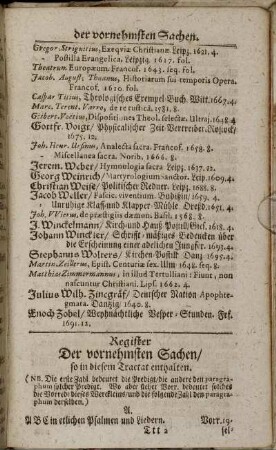 der vornehmsten Sachen.
Gregor. Strignitius, Exeqviæ Christianæ Leipz. 1621. 4.
- Postilla Evangelica, Leipzig. 1617. fol.
Theatrum Europæum, Francof. 1643. seq. fol.
Jacob. August; Thuanus, Historiarum sui temporis Opera.
Francof. 1610. fol.
Caspar Titius, Theologisches Exempel-Buch. Witt. 1667. 4.
Marc. Terent. Varro, de re rustica. 1581. 8.
Gisbert. Voetius, Disputationes Theol. selectæ. Ultraj. 1648. 4
Gottfr. Voigt/ Physicalischer Zeit-Vertreiber. Rostock/
1675. 12.
Joh. Henr. Ursinus, Analecta sacra. Francof. 1658. 8.
- Miscellanea sacra. Norib, 1666. 8.
Jerem. Weber/ Hymnologia sacra Leipz. 1637. 12.
Georg Weinrich/ Martyrologium sanctor. Leip. 1609. 4.
Christian Weise/ Politischer Redner. Leipz. 1688. 8.
Jacob Weller/ Fascic. viventium. Budißin/ 1659. 4.
- Unruhige Klapper-Mühle Dreßd. 1651. 4.
Joh. VVierus, de præstigiis dæmon. Basil. 1568. 8.
J. Winckelmann/ Kirch- und Hauß-Postill. Gies. 1618. 4.
Johann Winckler/ Schrift-mäßiges Bedencken über
die Erscheinung einer adelichen Jungfr. 1693. 4.
Stephanus Wolters/ Kirchen-Postill. Danz. 1695. 4.
Martin. Zeillerus, Epist. Centuria sex. Ulm. 1648. seqq. 8.
Matthias Zimmermannus, in illud Tertulliani: Fiunt, non
nascuntur Christiani. Lips. 1662. 4.
Julius Wilh. Zincgräf/ Deutscher Nation Apophte-
gmata. Danzig. 1640. 8.
Enoch Zobel/ Weyhnächtliche Vesper-Stunden. Frf.
1691. 12.
Register
Der vornehmsten Sachen/
so in diesem Tractat enthalten.
(NB. Die erste Zahl bedeutet die Predigt/ die andere den paragra-
phum solcher Predigt. Wo aber steher Vorr. bedeutet solches
die Vorrede dieses Werckleins/ und die folgende Zahl den para-
graphum derselben.)
A.
ABC in etlichen Psalmen und Liedern. Vorr. 19.
Ttt 2